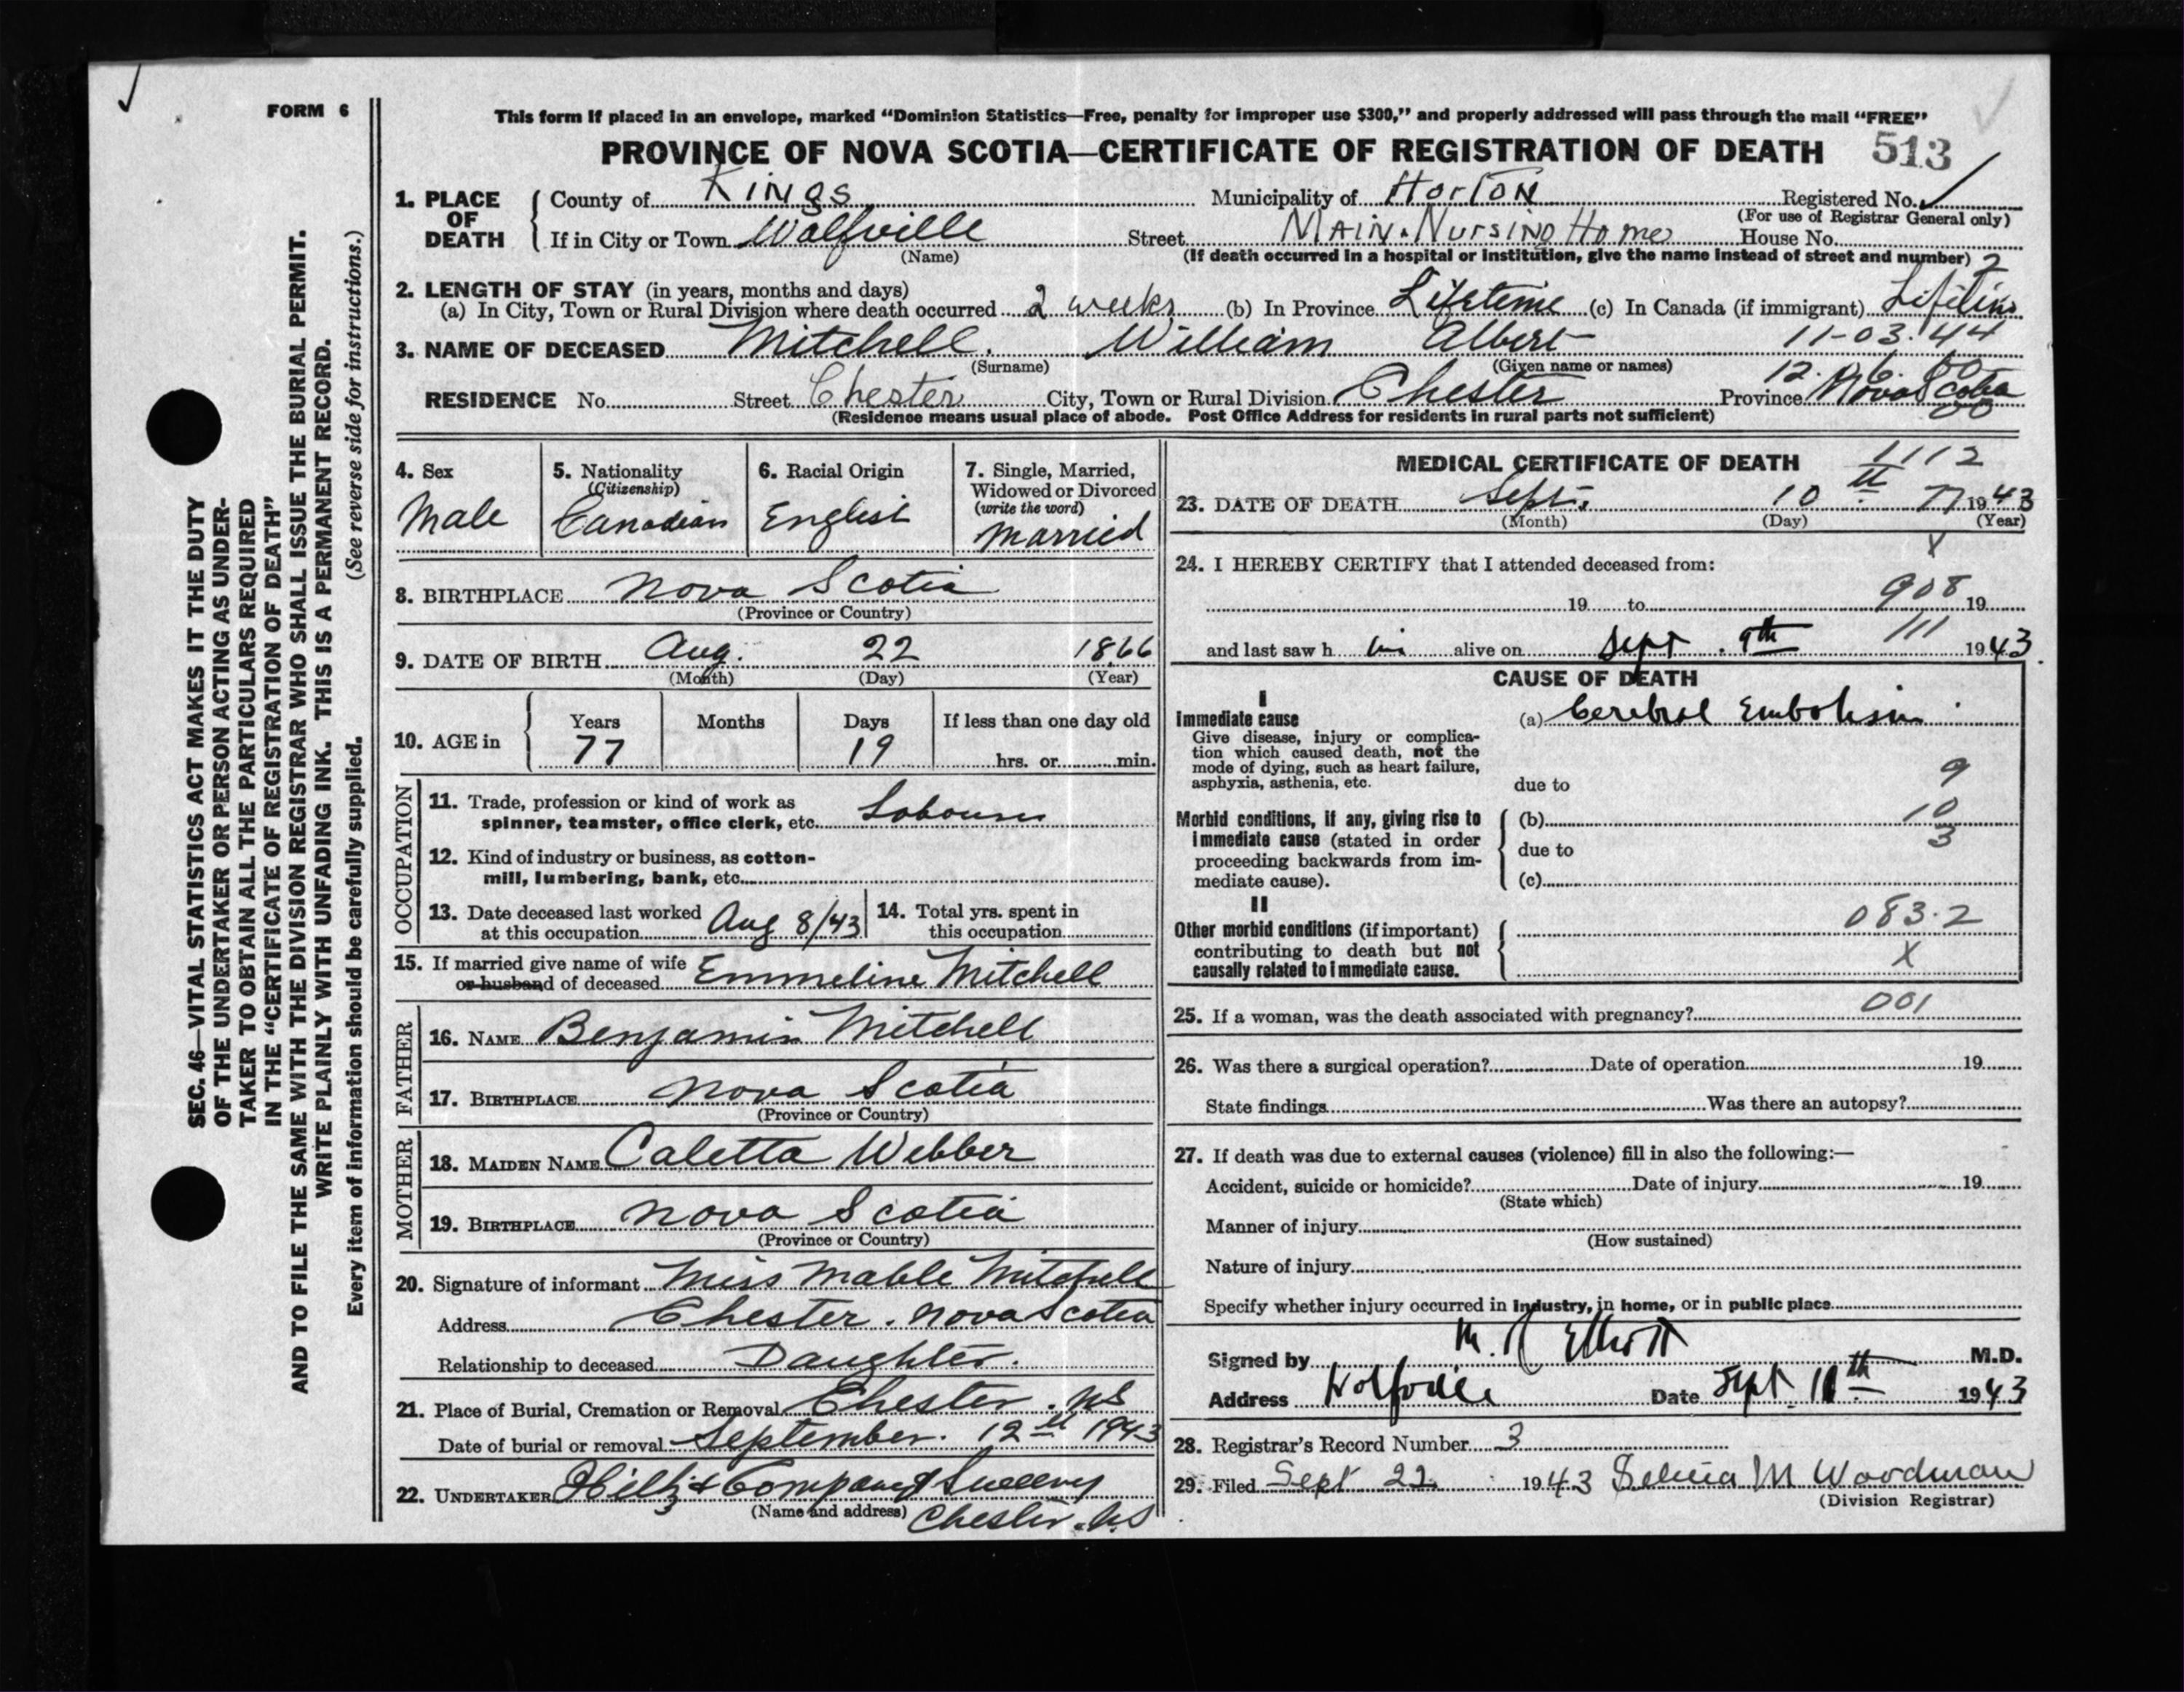 FORM 6
This form if placed in an envelope, marked "Dominion Statistics—Free, penalty for improper use $300," and properly addressed will pass through the mail "FREE"
PROVINCE OF NOVA SCOTIA—CERTIFICATE OF REGISTRATION OF DEATH 513
1. PLACE OF DEATH
County of Kings Municipality of Horton Registered No.
(For use of Registrar General only)
If in City or Town Wolfville Street Main. Nursing Home House No.
(Name) (If death occurred in a hospital or institution, give the name instead of street and number) 2
2. LENGTH OF STAY (in years, months and days)
(a) In City, Town or Rural Division where death occurred 2 weeks (b) In Province Lifetime (c) In Canada (if immigrant) Lifetime
3. NAME OF DECEASED Mitchell. William Albert 11-03.44
(Surname) (Given name or names) 12.06.00
RESIDENCE No. Street Chester City, Town or Rural Division Chester Province Nova Scotia
(Residence means usual place of abode. Post Office Address for residents in rural parts not sufficient) 00
4. Sex
Male
5. Nationality
(Citizenship)
Canadian
6. Racial Origin
English
7. Single, Married,
Widowed or Divorced
(write the word)
Married
8. BIRTHPLACE Nova Scotia
(Province or Country)
9. DATE OF BIRTH Aug. 22 1866
(Month) (Day) (Year)
10. AGE in
Years Months Days If less than one day old
77 19 hrs. or min.
OCCUPATION
11. Trade, profession or kind of work as
spinner, teamster, office clerk, etc. Labourer
12. Kind of industry or business, as cotton-
mill, lumbering, bank, etc.
13. Date deceased last worked
at this occupation Aug 8/43
14. Total yrs. spent in
this occupation
15. If married give name of wife
or husband of deceased Emmeline Mitchell
FATHER
16. NAME Benjamin Mitchell
17. BIRTHPLACE Nova Scotia
(Province or Country)
MOTHER
18. MAIDEN NAME Caletta Webber
19. BIRTHPLACE Nova Scotia
(Province or Country)
20. Signature of informant Miss Mable Mitchell
Address Chester. Nova Scotia
Relationship to deceased Daughter.
21. Place of Burial, Cremation or Removal Chester. NS
Date of burial or removal September. 12th 1943
22. UNDERTAKER Hiltz & Company Sweeny
(Name and address) Chester. N.S
MEDICAL CERTIFICATE OF DEATH 1112
23. DATE OF DEATH Sept. 10th 77 1943
(Month) (Day) (Year)
X
24. I HEREBY CERTIFY that I attended deceased from:
19 to 908 19
111
and last saw h im alive on Sept. 9th 1943.
CAUSE OF DEATH
I
Immediate cause
(a) Cerebral Embolism
Give disease, injury or complica-
tion which caused death, not the
mode of dying, such as heart failure,
asphyxia, asthenia, etc.
due to 9
Morbid conditions, if any, giving rise to
immediate cause (stated in order
proceeding backwards from im-
mediate cause).
(b) 10
due to 3
(c)
II
Other morbid conditions (if important)
contributing to death but not
causally related to immediate cause.
083.2
X
25. If a woman, was the death associated with pregnancy? 001
26. Was there a surgical operation? Date of operation 19
State findings Was there an autopsy?
27. If death was due to external causes (violence) fill in also the following:—
Accident, suicide or homicide? Date of injury 19
(State which)
Manner of injury
(How sustained)
Nature of injury
Specify whether injury occurred in industry, in home, or in public place
Signed by M. R Elliott M.D.
Address Wolfville Date Sept. 11th 1943
28. Registrar's Record Number 3
29. Filed Sept 22 1943 M Woodman
(Division Registrar)
SEC. 46—VITAL STATISTICS ACT MAKES IT THE DUTY
OF THE UNDERTAKER OR PERSON ACTING AS UNDER-
TAKER TO OBTAIN ALL THE PARTICULARS REQUIRED
IN THE "CERTIFICATE OF REGISTRATION OF DEATH"
AND TO FILE THE SAME WITH THE DIVISION REGISTRAR WHO SHALL ISSUE THE BURIAL PERMIT.
WRITE PLAINLY WITH UNFADING INK. THIS IS A PERMANENT RECORD.
Every item of information should be carefully supplied. (See reverse side for instructions.)